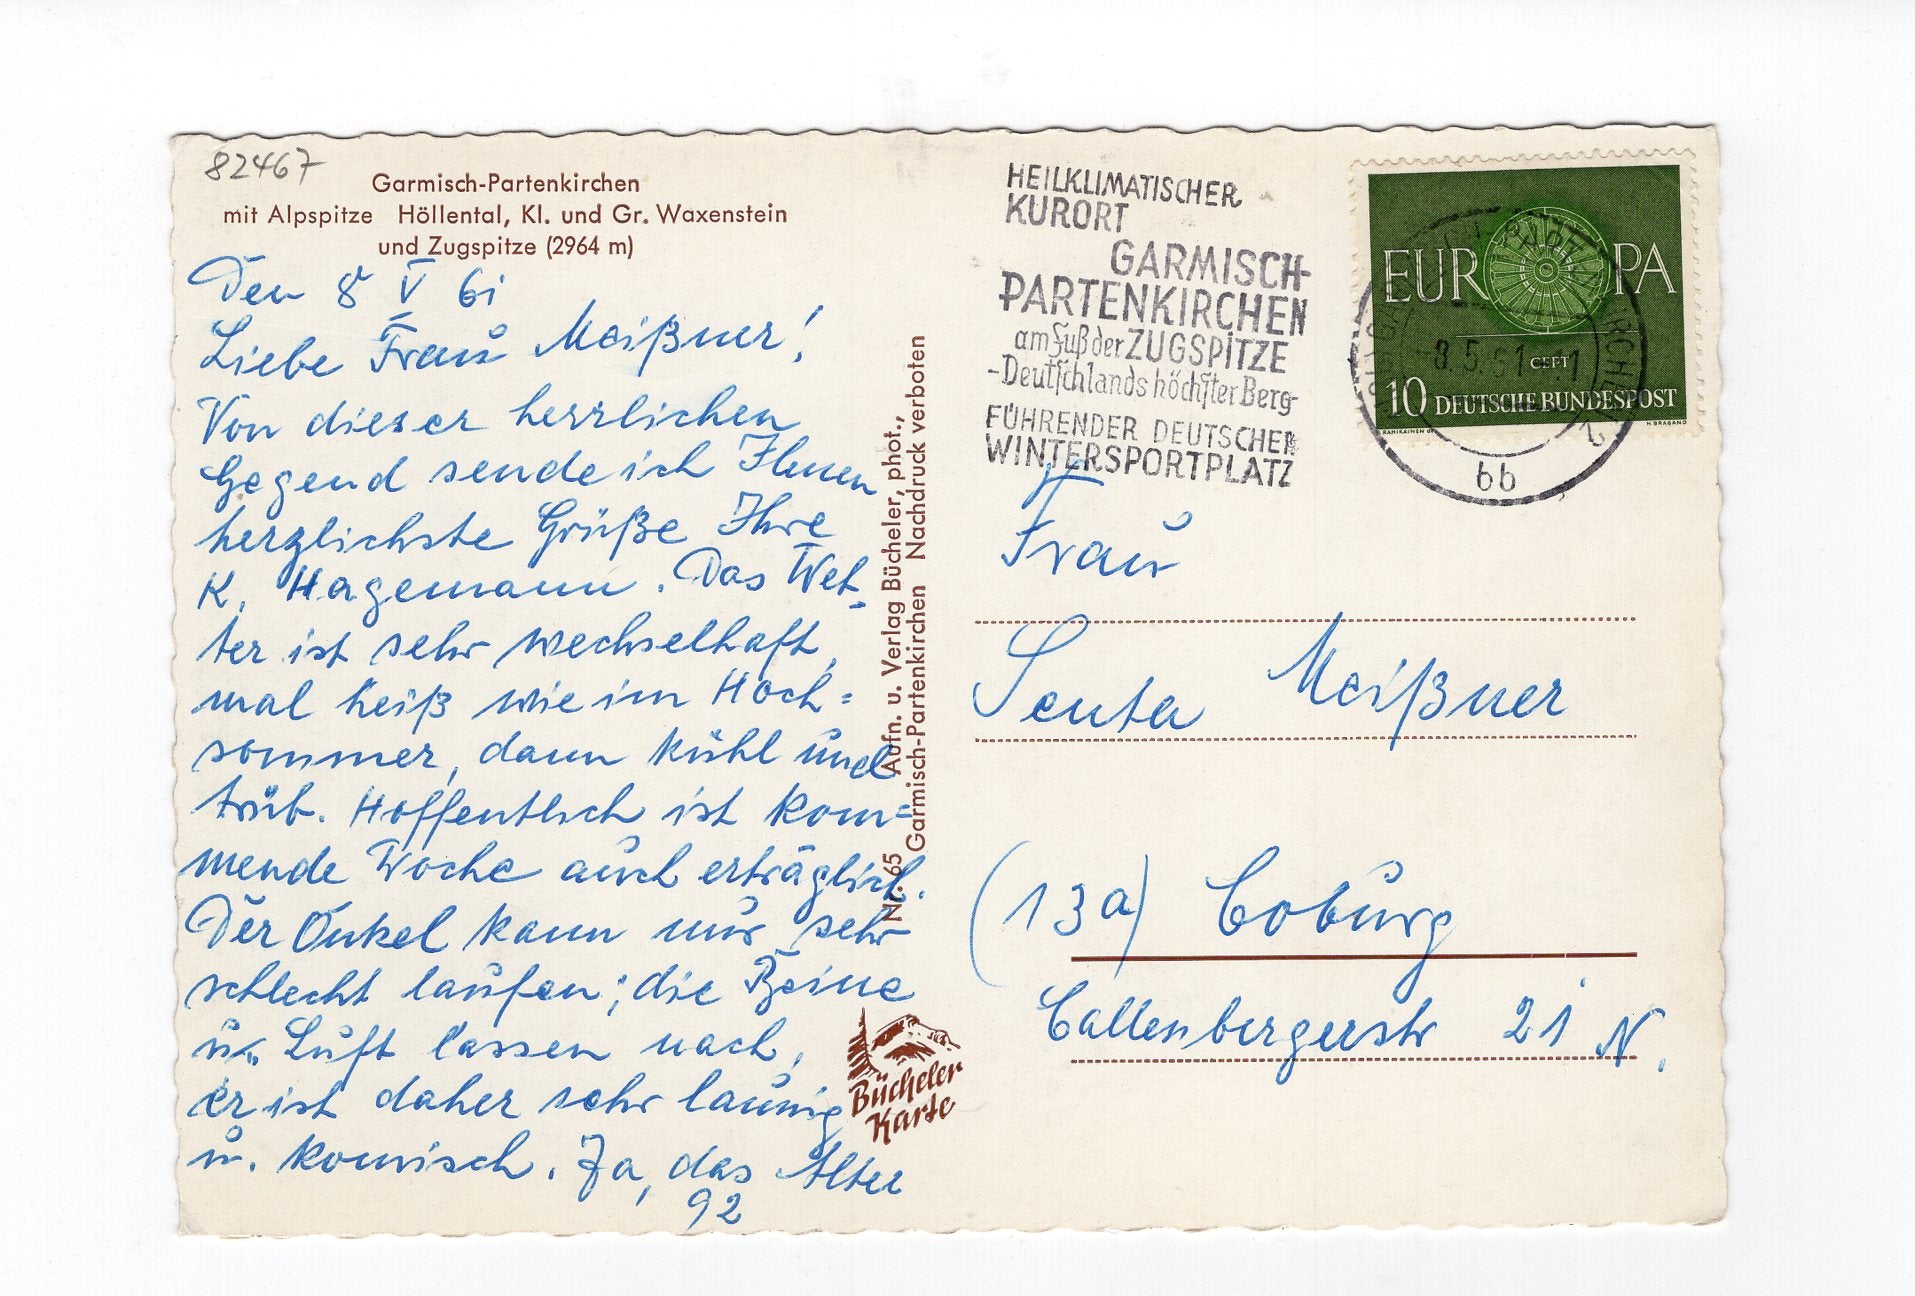 82467
Garmisch-Partenkirchen
mit Alpspitze Höllental, Kl. und Gr. Waxenstein
und Zugspitze (2964 m)
Den 8 V 61
Liebe Frau Meißner!
Von dieser herrlichen
Gegend sende ich Ihnen
herzlichste Grüße Ihre
K. Hagemann. Das Wet-
ter ist sehr wechselhaft,
mal heiß wie im Hoch=
sommer, dann kühl und
trüb. Hoffentlich ist kom=
mende Woche auch erträglich.
Der Onkel kann nur sehr
schlecht laufen; die Beine
u. Luft lassen nach,
er ist daher sehr launig
u. komisch. Ja, das Alter
92
Nr. 65 Aufn. u. Verlag Bücheler, phot.,
Garmisch-Partenkirchen Nachdruck verboten
Bücheler
Karte
HEILKLIMATISCHER
KURORT
GARMISCH-
PARTENKIRCHEN
am Fuß der ZUGSPITZE
-Deutschlands höchster Berg-
FÜHRENDER DEUTSCHER
WINTERSPORTPLATZ
EUROPA
CEPT
10 DEUTSCHE BUNDESPOST
H. BRABAND
8.5.61
bb
Frau
Senta Meißner
(13a) Coburg
Callenbergerstr 21 N.